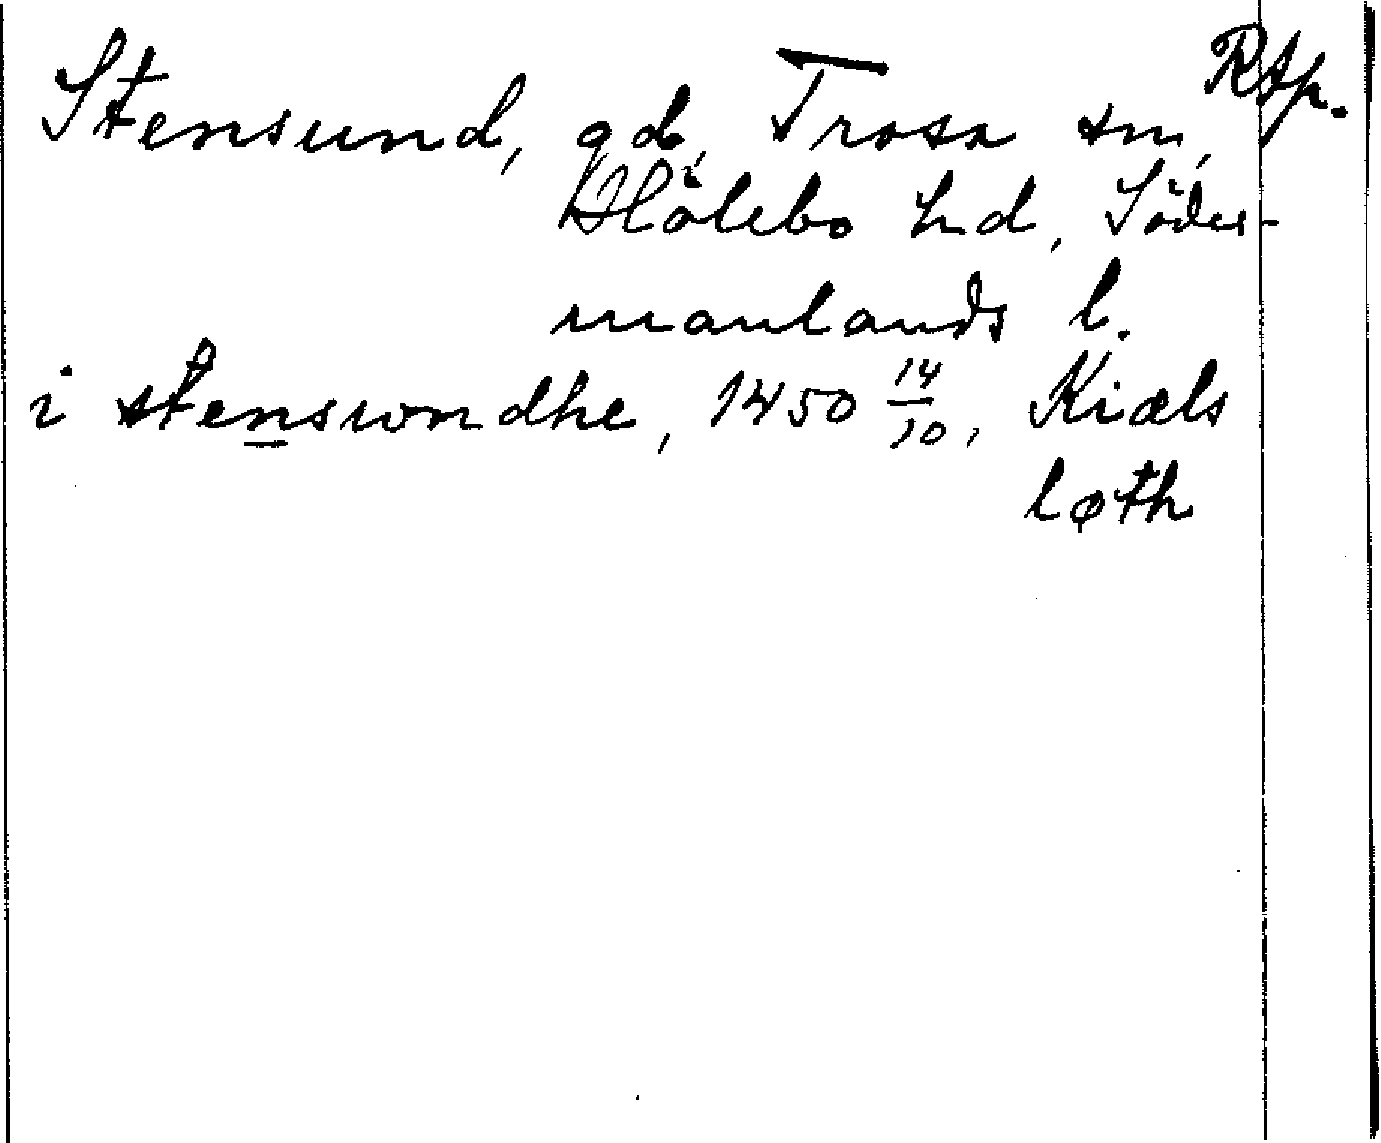 Stensund, gd, Trosa sn, Rap.
Hölebo hd, Söder-
manlands l.
i stenswndhe, 1450 14/10, Kiæls
løth